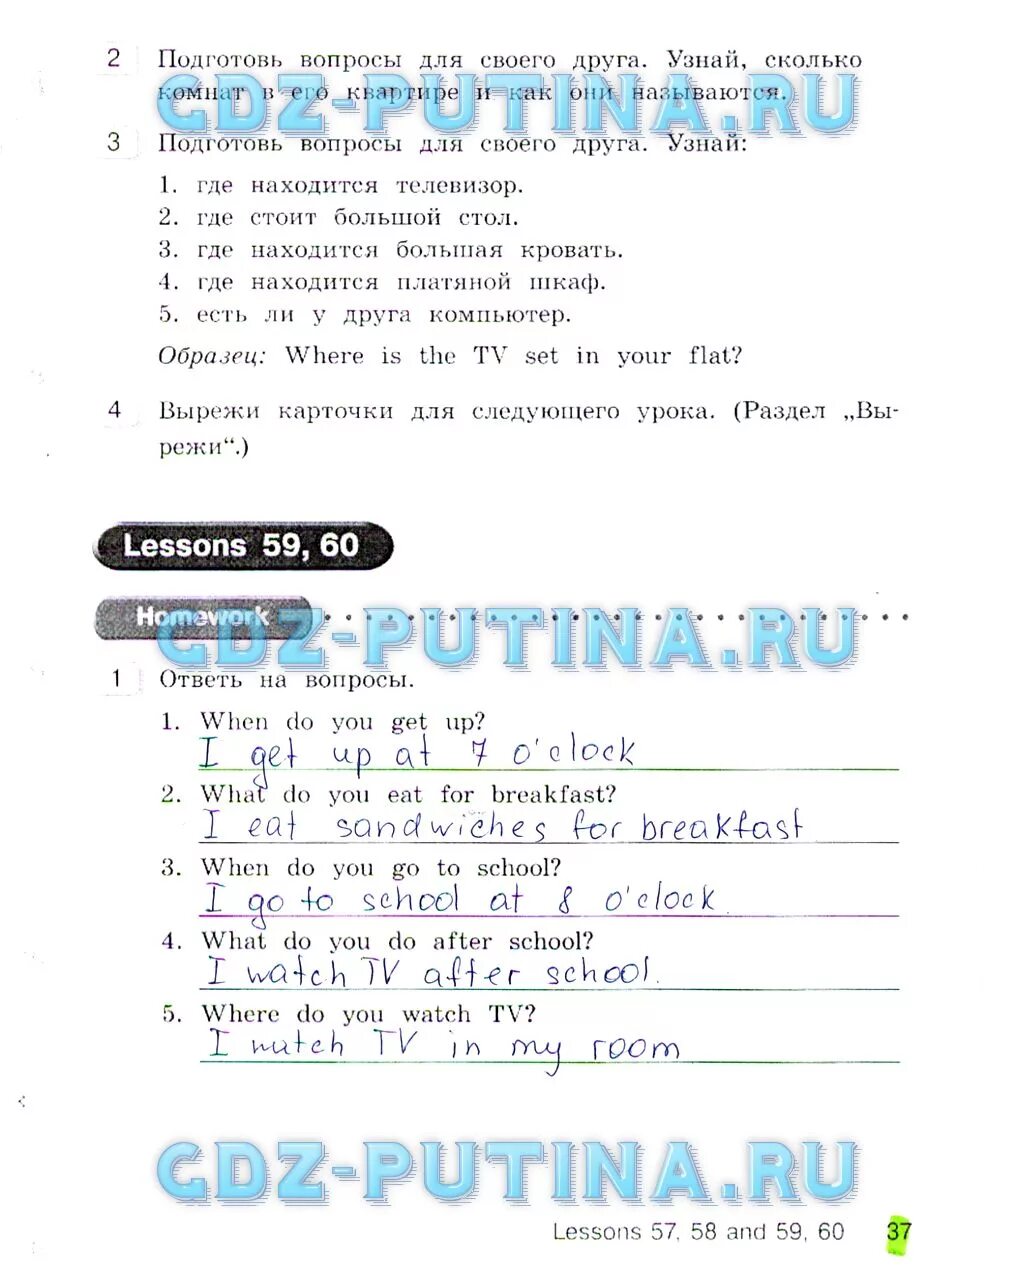 2 Подготовь вопросы для своего друга. Узнай, сколько
комнат в его квартире и как они называются.
GDZ-PUTINA.RU
3 Подготовь вопросы для своего друга. Узнай:
1. где находится телевизор.
2. где стоит большой стол.
3. где находится большая кровать.
4. где находится платяной шкаф.
5. есть ли у друга компьютер.
Образец: Where is the TV set in your flat?
4 Вырежи карточки для следующего урока. (Раздел „Вы-
режи“.)
Lessons 59, 60
Homework
GDZ-PUTINA.RU
1 Ответь на вопросы.
1. When do you get up?
I get up at 7 o'clock
2. What do you eat for breakfast?
I eat sandwiches for breakfast
3. When do you go to school?
I go to school at 8 o'clock
4. What do you do after school?
I watch TV after school.
5. Where do you watch TV?
I watch TV in my room
GDZ-PUTINA.RU
Lessons 57, 58 and 59, 60 37